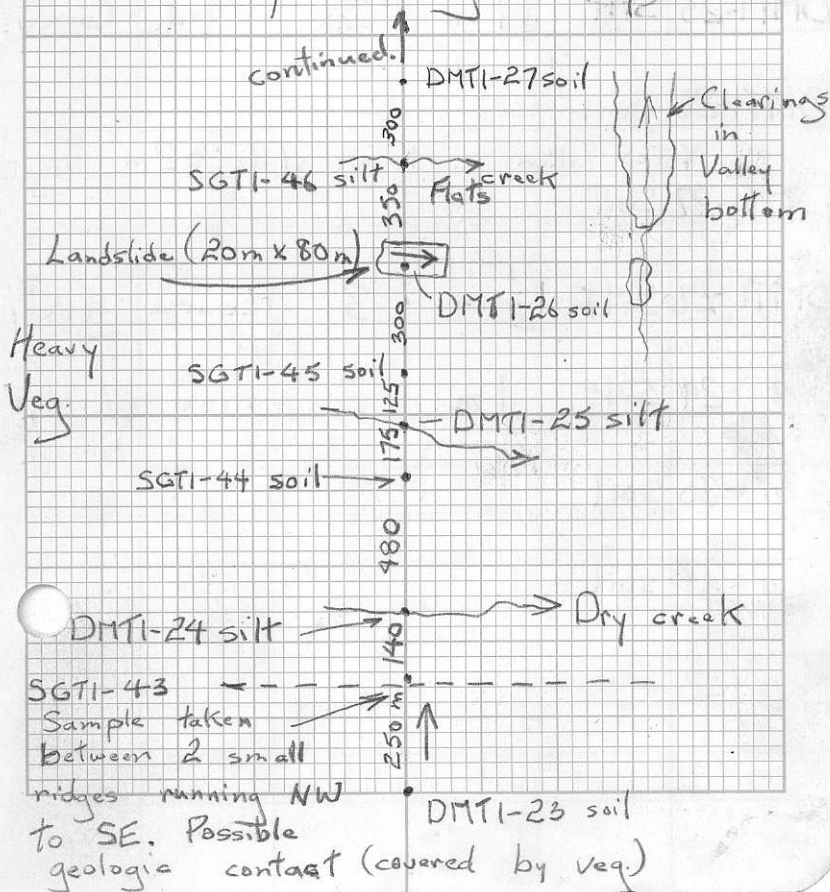 continued.
DMT1-27 soil
300
Clearings
in
Valley
bottom
SGT1-46 silt
creek
Flats
350
Landslide (20m x 80m)
DMT1-26 soil
300
Heavy
Veg.
SGT1-45 soil
125
DMT1-25 silt
175
SGT1-44 soil
480
Dry creek
DMT1-24 silt
140
SGT1-43
Sample taken
between 2 small
ridges running NW
to SE. Possible
geologic contact (covered by veg.)
250 m
DMT1-23 soil